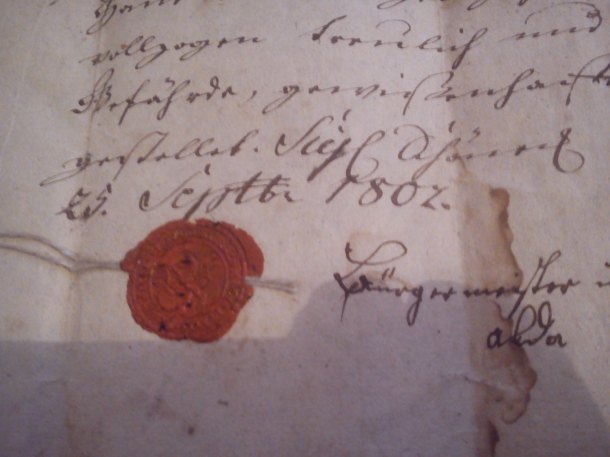 vollzogen treulich und
Gefährde, gewissenhaft
gestellet. Sigl Schöneck
25. Septbr 1802.
Bürgermeister u
allda